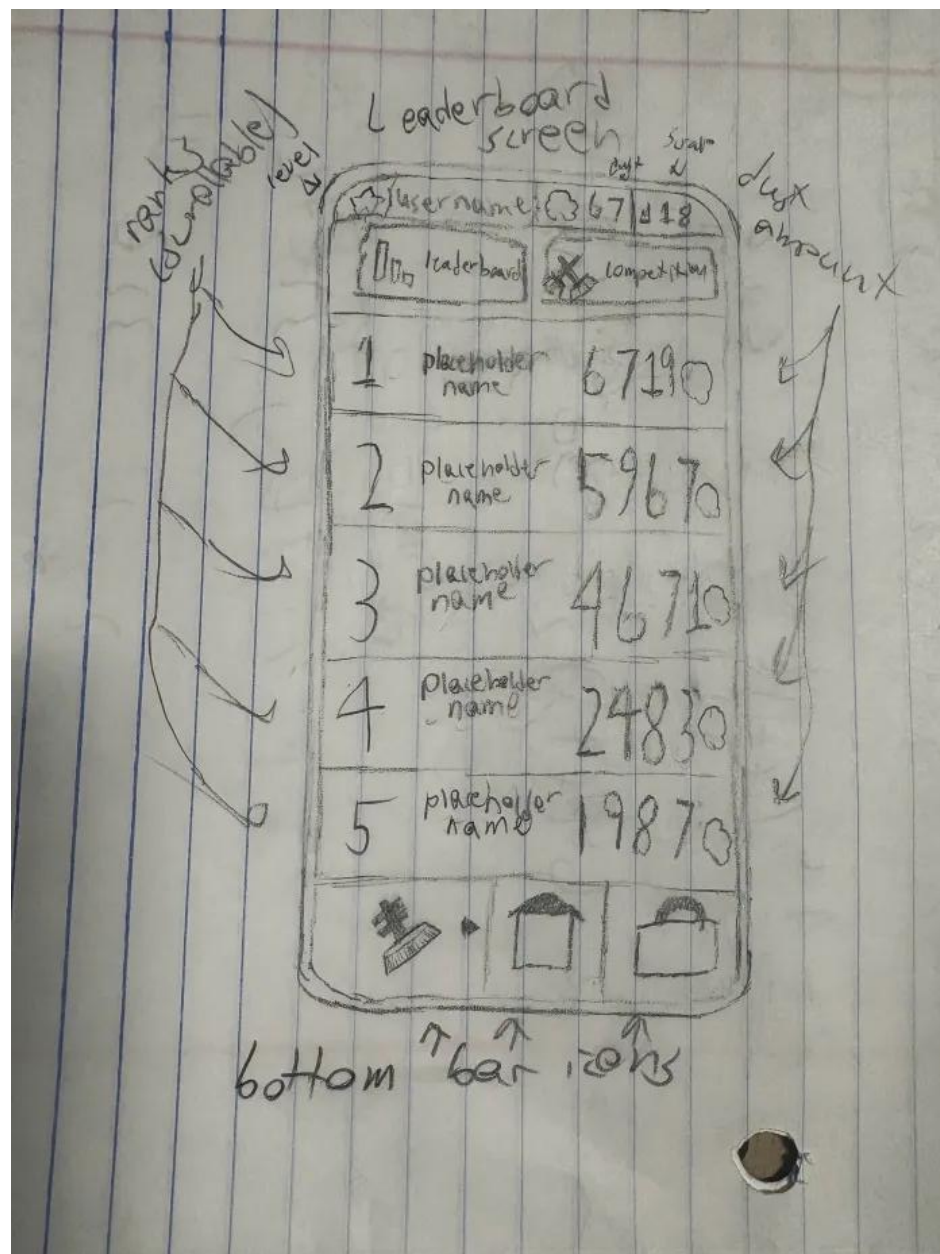 Leaderboard
screen
ranks
(scrollable)
level
dust
dust
amount
username
67
18
leaderboard
competition
1
placeholder
name
6719
2
placeholder
name
5967
3
placeholder
name
4671
4
placeholder
name
2483
5
placeholder
name
1987
bottom bar icons